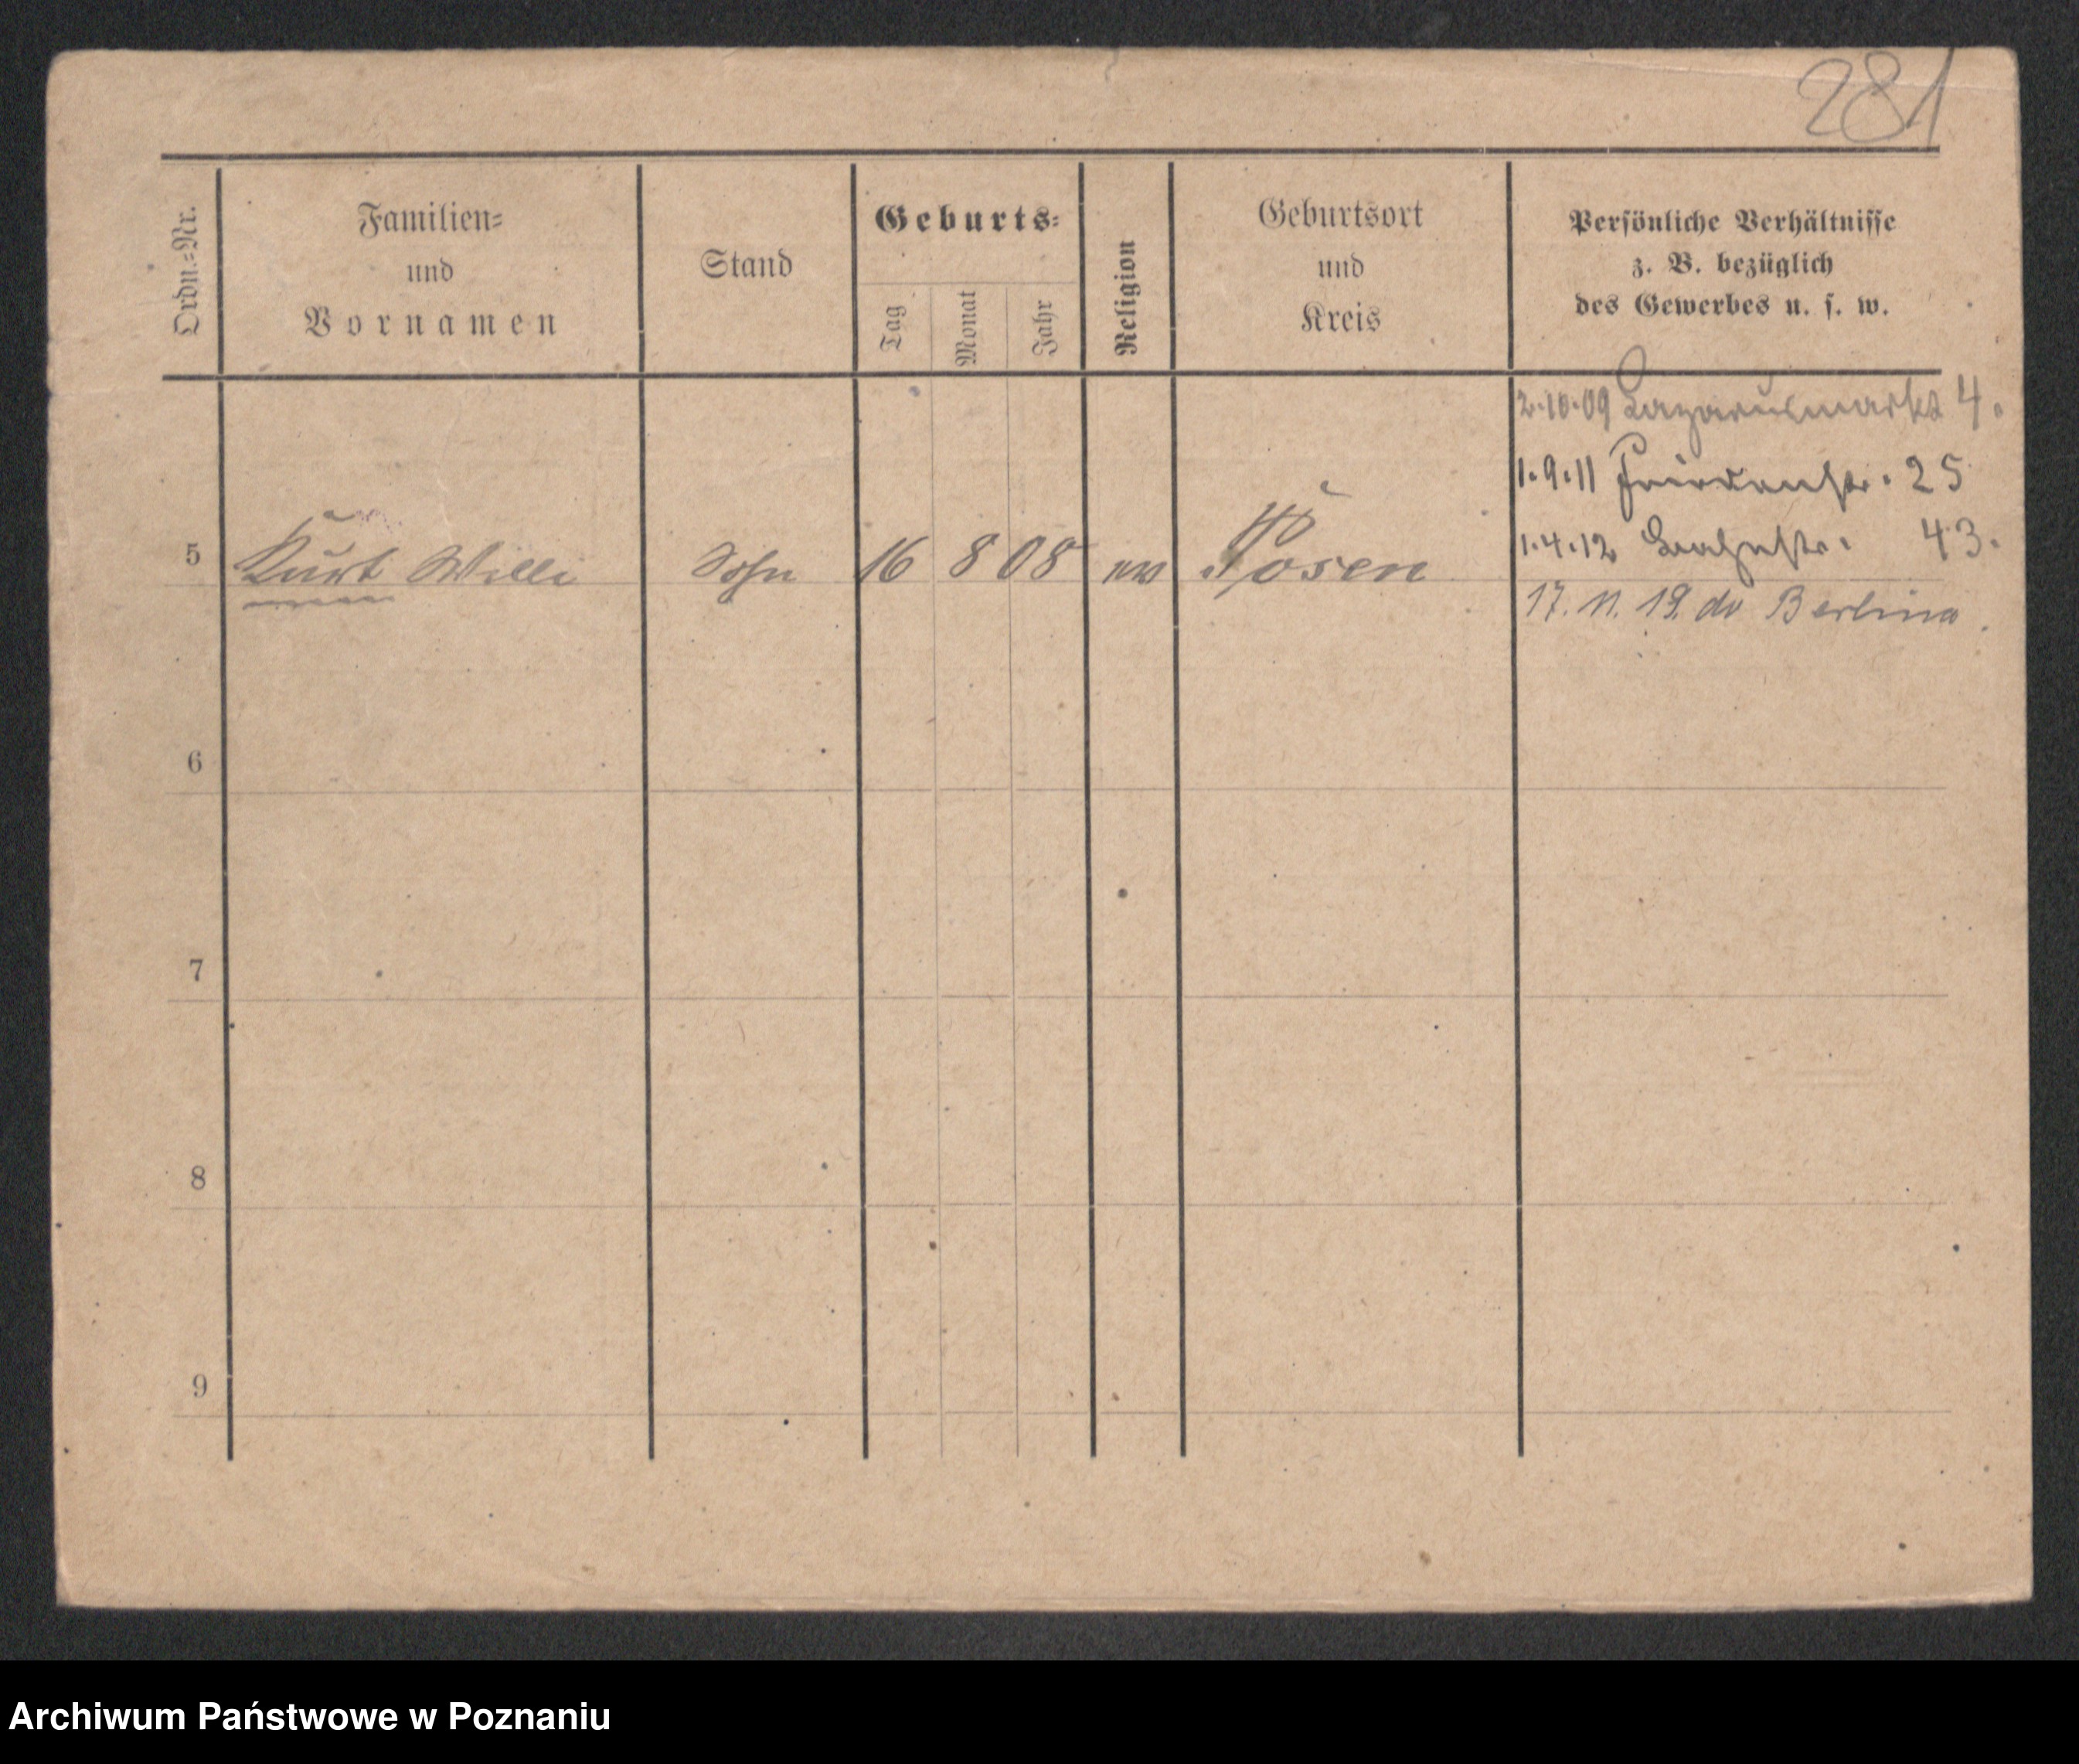 281
Ordn.=Nr.
Familien=
und
Vornamen
Stand
Geburts=
Tag
Monat
Jahr
Religion
Geburtsort
und
Kreis
Persönliche Verhältnisse
z. B. bezüglich
des Gewerbes u. s. w.
2.10.09 Lazarusmarkt 4.
1.9.11 25
5 Kurt Willi Sohn 16 8 08 Posen
1.4.12 43.
17. 11. 19. do Berlina
6
7
8
9
Archiwum Państwowe w Poznaniu